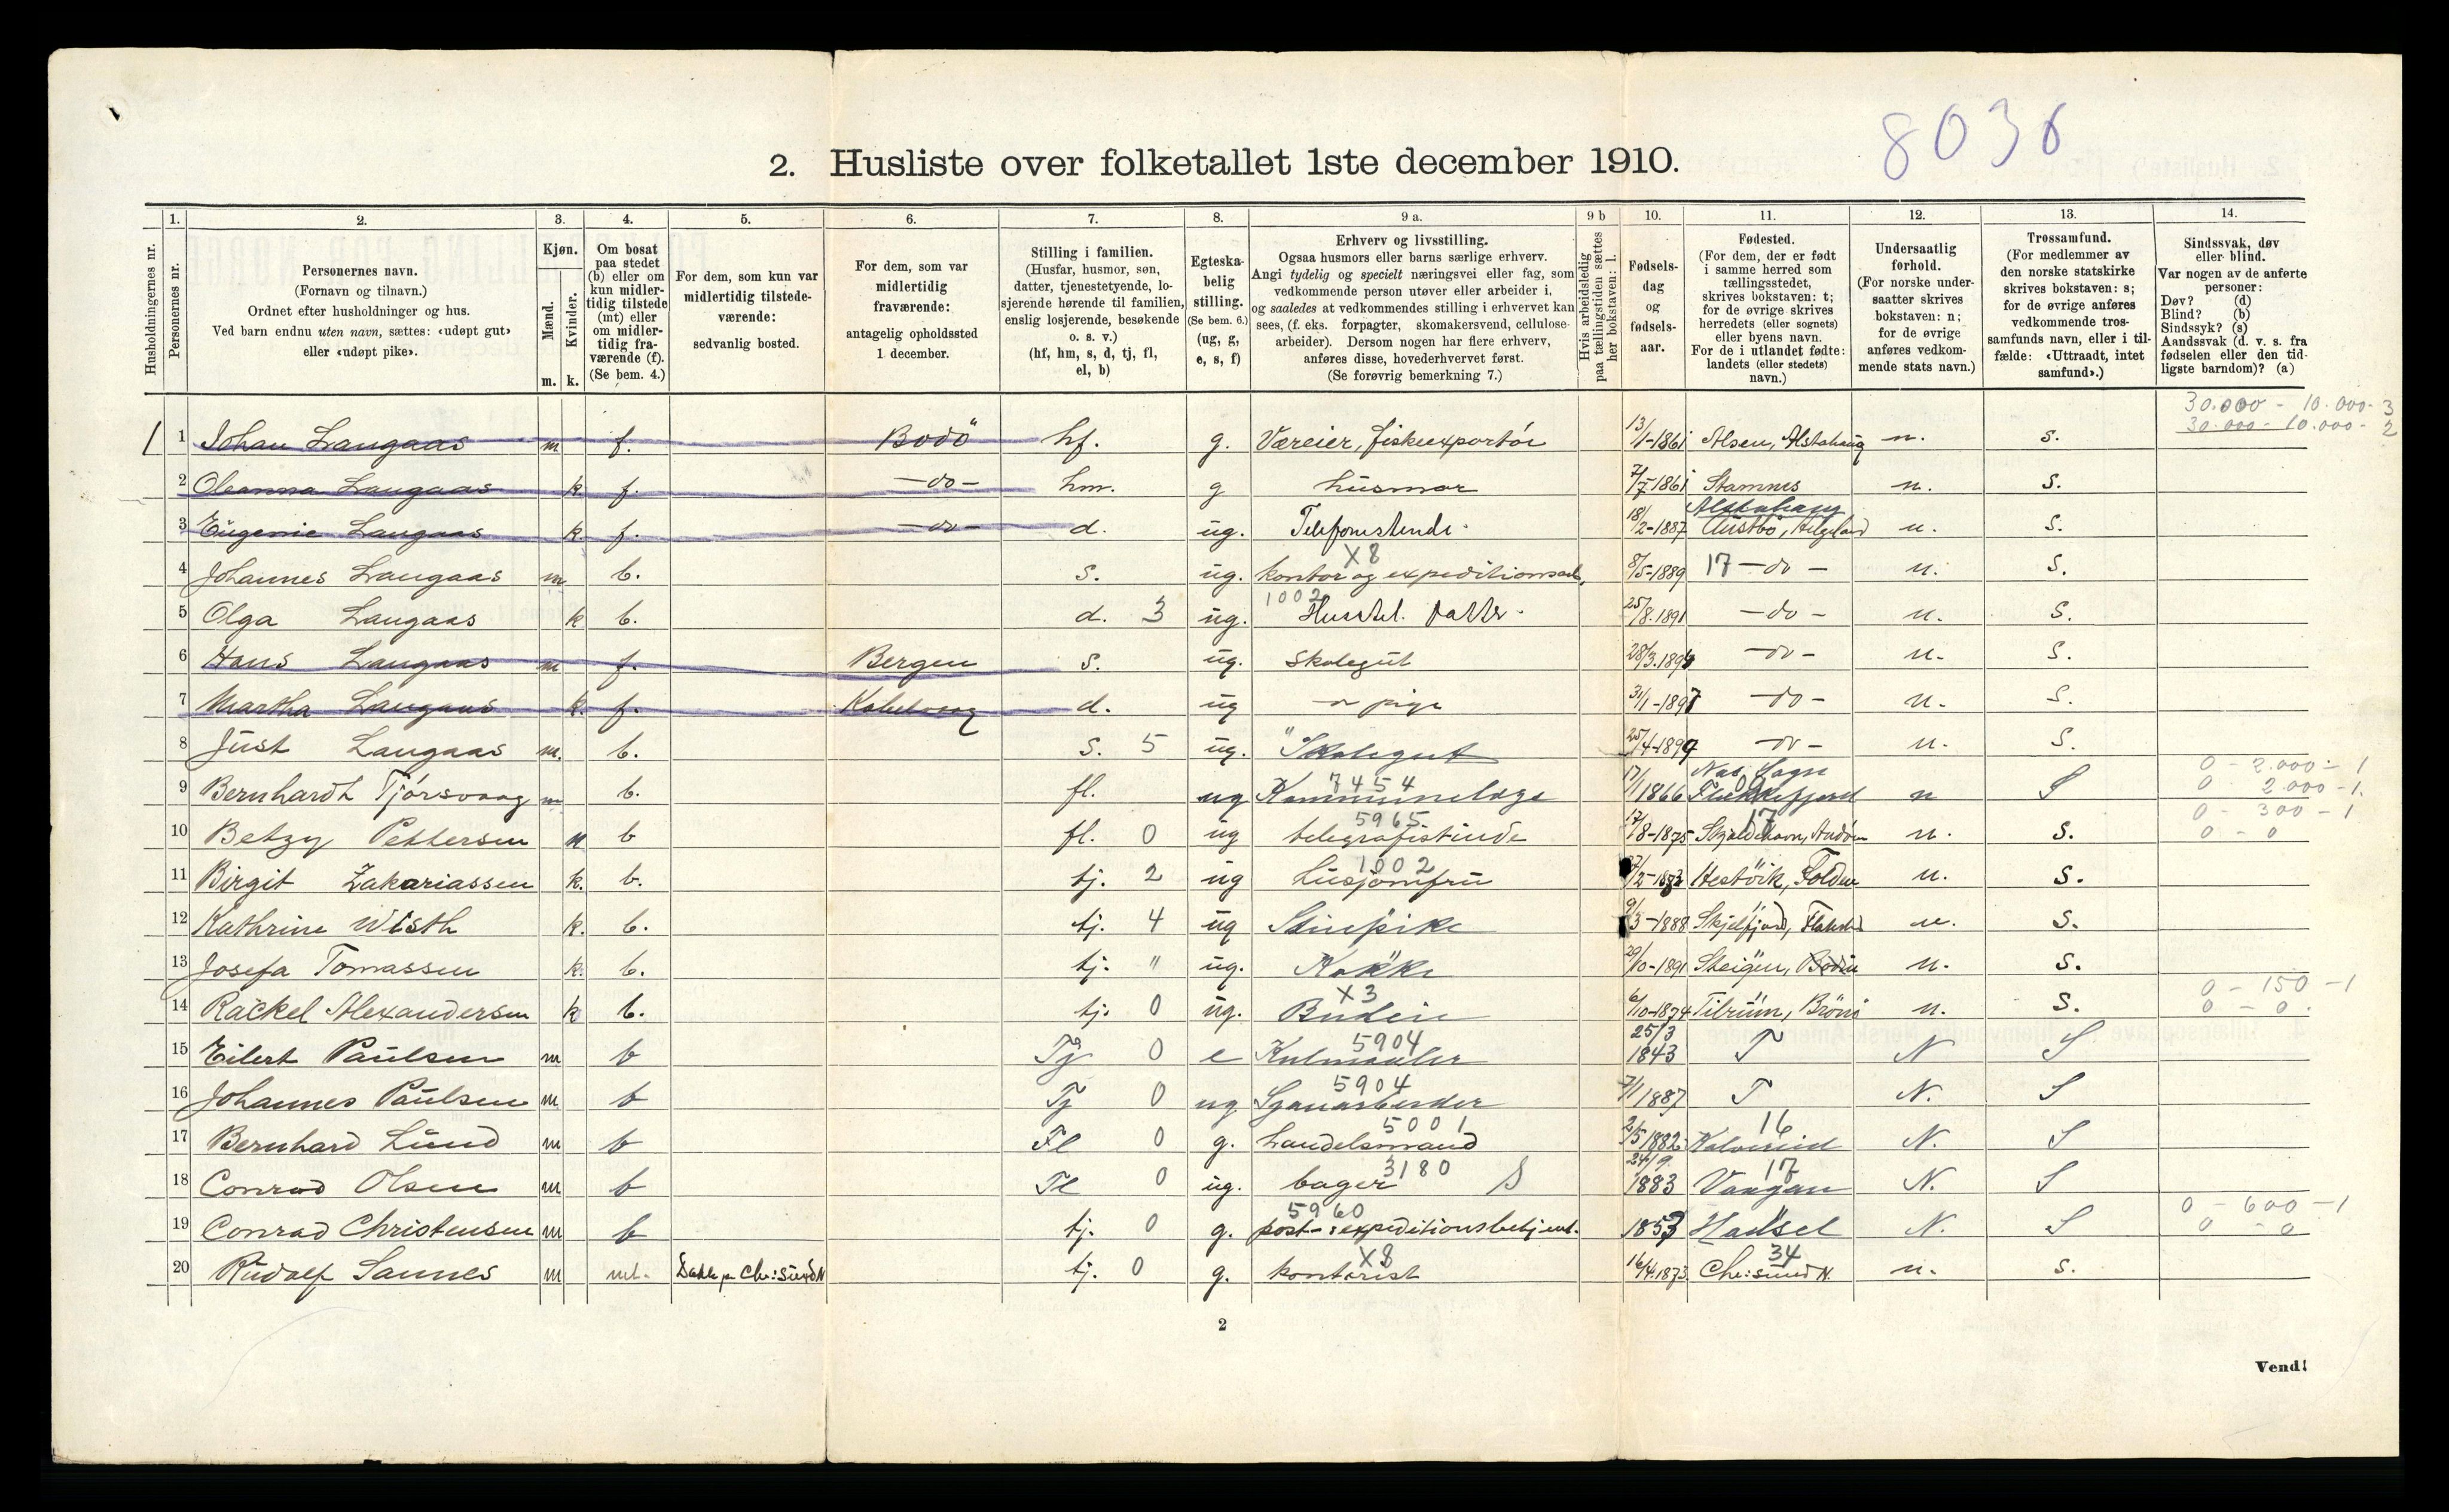 8036
2. Husliste over folketallet 1ste december 1910.
Husholdningernes nr.
1. Personernes nr.
2. Personernes navn.
(Fornavn og tilnavn.)
Ordnet efter husholdninger og hus.
Ved barn endnu uten navn, sættes: «udøpt gut»
eller «udøpt pike».
3. Kjøn.
Mænd. m.
Kvinder. k.
4. Om bosat
paa stedet
(b) eller om
kun midler-
tidig tilstede
(mt) eller
om midler-
tidig fra-
værende (f).
(Se bem. 4.)
5. For dem, som kun var
midlertidig tilstede-
værende:
sedvanlig bosted.
6. For dem, som var
midlertidig
fraværende:
antagelig opholdssted
1 december.
7. Stilling i familien.
(Husfar, husmor, søn,
datter, tjenestetyende, lo-
sjerende hørende til familien,
enslig losjerende, besøkende
o. s. v.)
(hf, hm, s, d, tj, fl,
el, b)
8. Egteska-
belig
stilling.
(Se bem. 6.)
(ug, g,
e, s, f)
9 a. Erhverv og livsstilling.
Ogsaa husmors eller barns særlige erhverv.
Angi tydelig og specielt næringsvei eller fag, som
vedkommende person utøver eller arbeider i,
og saaledes at vedkommendes stilling i erhvervet kan
sees, (f. eks. forpagter, skomakersvend, cellulose-
arbeider). Dersom nogen har flere erhverv,
anføres disse, hovederhvervet først.
(Se forøvrig bemerkning 7.)
9 b Hvis arbeidsledig
paa tællingstiden sættes
her bokstaven: l.
10. Fødsels-
dag
og
fødsels-
aar.
11. Fødested.
(For dem, der er født
i samme herred som
tællingsstedet,
skrives bokstaven: t;
for de øvrige skrives
herredets (eller sognets)
eller byens navn.
For de i utlandet fødte:
landets (eller stedets)
navn.)
12. Undersaatlig
forhold.
(For norske under-
saatter skrives
bokstaven: n;
for de øvrige
anføres vedkom-
mende stats navn.)
13. Trossamfund.
(For medlemmer av
den norske statskirke
skrives bokstaven: s;
for de øvrige anføres
vedkommende tros-
samfunds navn, eller i til-
fælde: «Uttraadt, intet
samfund».)
14. Sindssvak, døv
eller blind.
Var nogen av de anførte
personer:
Døv? (d)
Blind? (b)
Sindssyk? (s)
Aandssvak (d. v. s. fra
fødselen eller den tid-
ligste barndom)? (a)
30.000 - 10.000 - 3
30.000 - 10.000 - 2
1 1 Johan Langaas m f. Bodö hf. g. Væreier, fiskeexportör 13/1-1861 Alsen, Alstahaug n. s.
2 Oleanna Langaas k. f. -do- hm. g husmor 7/7-1861 Stamnes n. s.
Alstahaug
3 Eugenie Langaas k f. -do- d. ug. Telefonistinde 18/2-1887 Austbö, Helgeland n. s.
X8
4 Johannes Langaas m b. s. ug. kontor og expeditionsarb. 8/5-1889 17 -do- n. s.
1002
5 Olga Langaas k b. d. 3 ug. Husstel. datter 25/8.1891 -do- n. s.
6 Hans Langaas m f. Bergen s. ug. skolegut 28/3.1894 -do- n. s.
7 Martha Langaas k. f. Kabelvaag d. ug - pige 31/1-1897 -do- n. s.
8 Just Langaas m. b. s. 5 ug. Skolegut 25/4-1899 -do- n. s.
7454
0 - 2.000 - 1
9 Bernhardt Tjörsvaag m b. fl. ug Kommunelæge 17/1 1866 Flekkefjord n S 0 2.000 - 1.
5965 17
0 - 300 - 1
10 Betzy Pettersen k b fl. 0 ug telegrafistinde 17/8-1875 Skjoldehavn, Andöen n. s. 0 - 0
1002
11 Birgit Zakariassen k. b. tj. 2 ug husjomfru /2-1883 Hestvik, Folden n. s.
12 Kathrine Wisth k. b. tj. 4 ug Stuepike 9/3-1888 Skjelfjord, Flakstad n. s.
13 Josefa Tomassen k. b. tj. " ug. Kokke 20/10-1891 Steigen, Bodin n. s.
X3
0 - 150 - 1
14 Rackel Alexandersen k b. tj. 0 ug. Budeie 6/10-1874 Tilrum, Brönö n. s. 0 - 0.
5904
15 Eilert Paulsen m b Tj 0 e Kulmaaler 25/3 1843 T N S
5904
16 Johannes Paulsen m b Tj 0 ug 7/1 1887 T N. S
5001 16
17 Bernhard Lund m b Fl 0 g. handelsmand 2/5 1882 N. S
3180 17
18 Conrad Olsen m b Fl 0 ug. bager 24/9. 1883 Vaagan N. S
5960
0 - 600 - 1
19 Conrad Christensen m b tj. 0 g. post-expeditionsbetjent. 1853 Hadsel N. S 0 - 0
X8 34
20 Rudolf Sannes m mt. Chr:sund N tj. 0 g. kontorist 16/4.1873. Chr:sund N. n. s.
2
Vend!